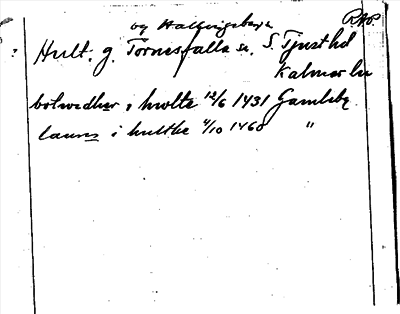 og Hallingeberga
RAP.
? Hult. g. Törnesfalla sn. S. Tjust hd
Kalmar län
botwedher i hwlte 12/6 1431 Gamleby
laurus i hultke 4/10 1460 "